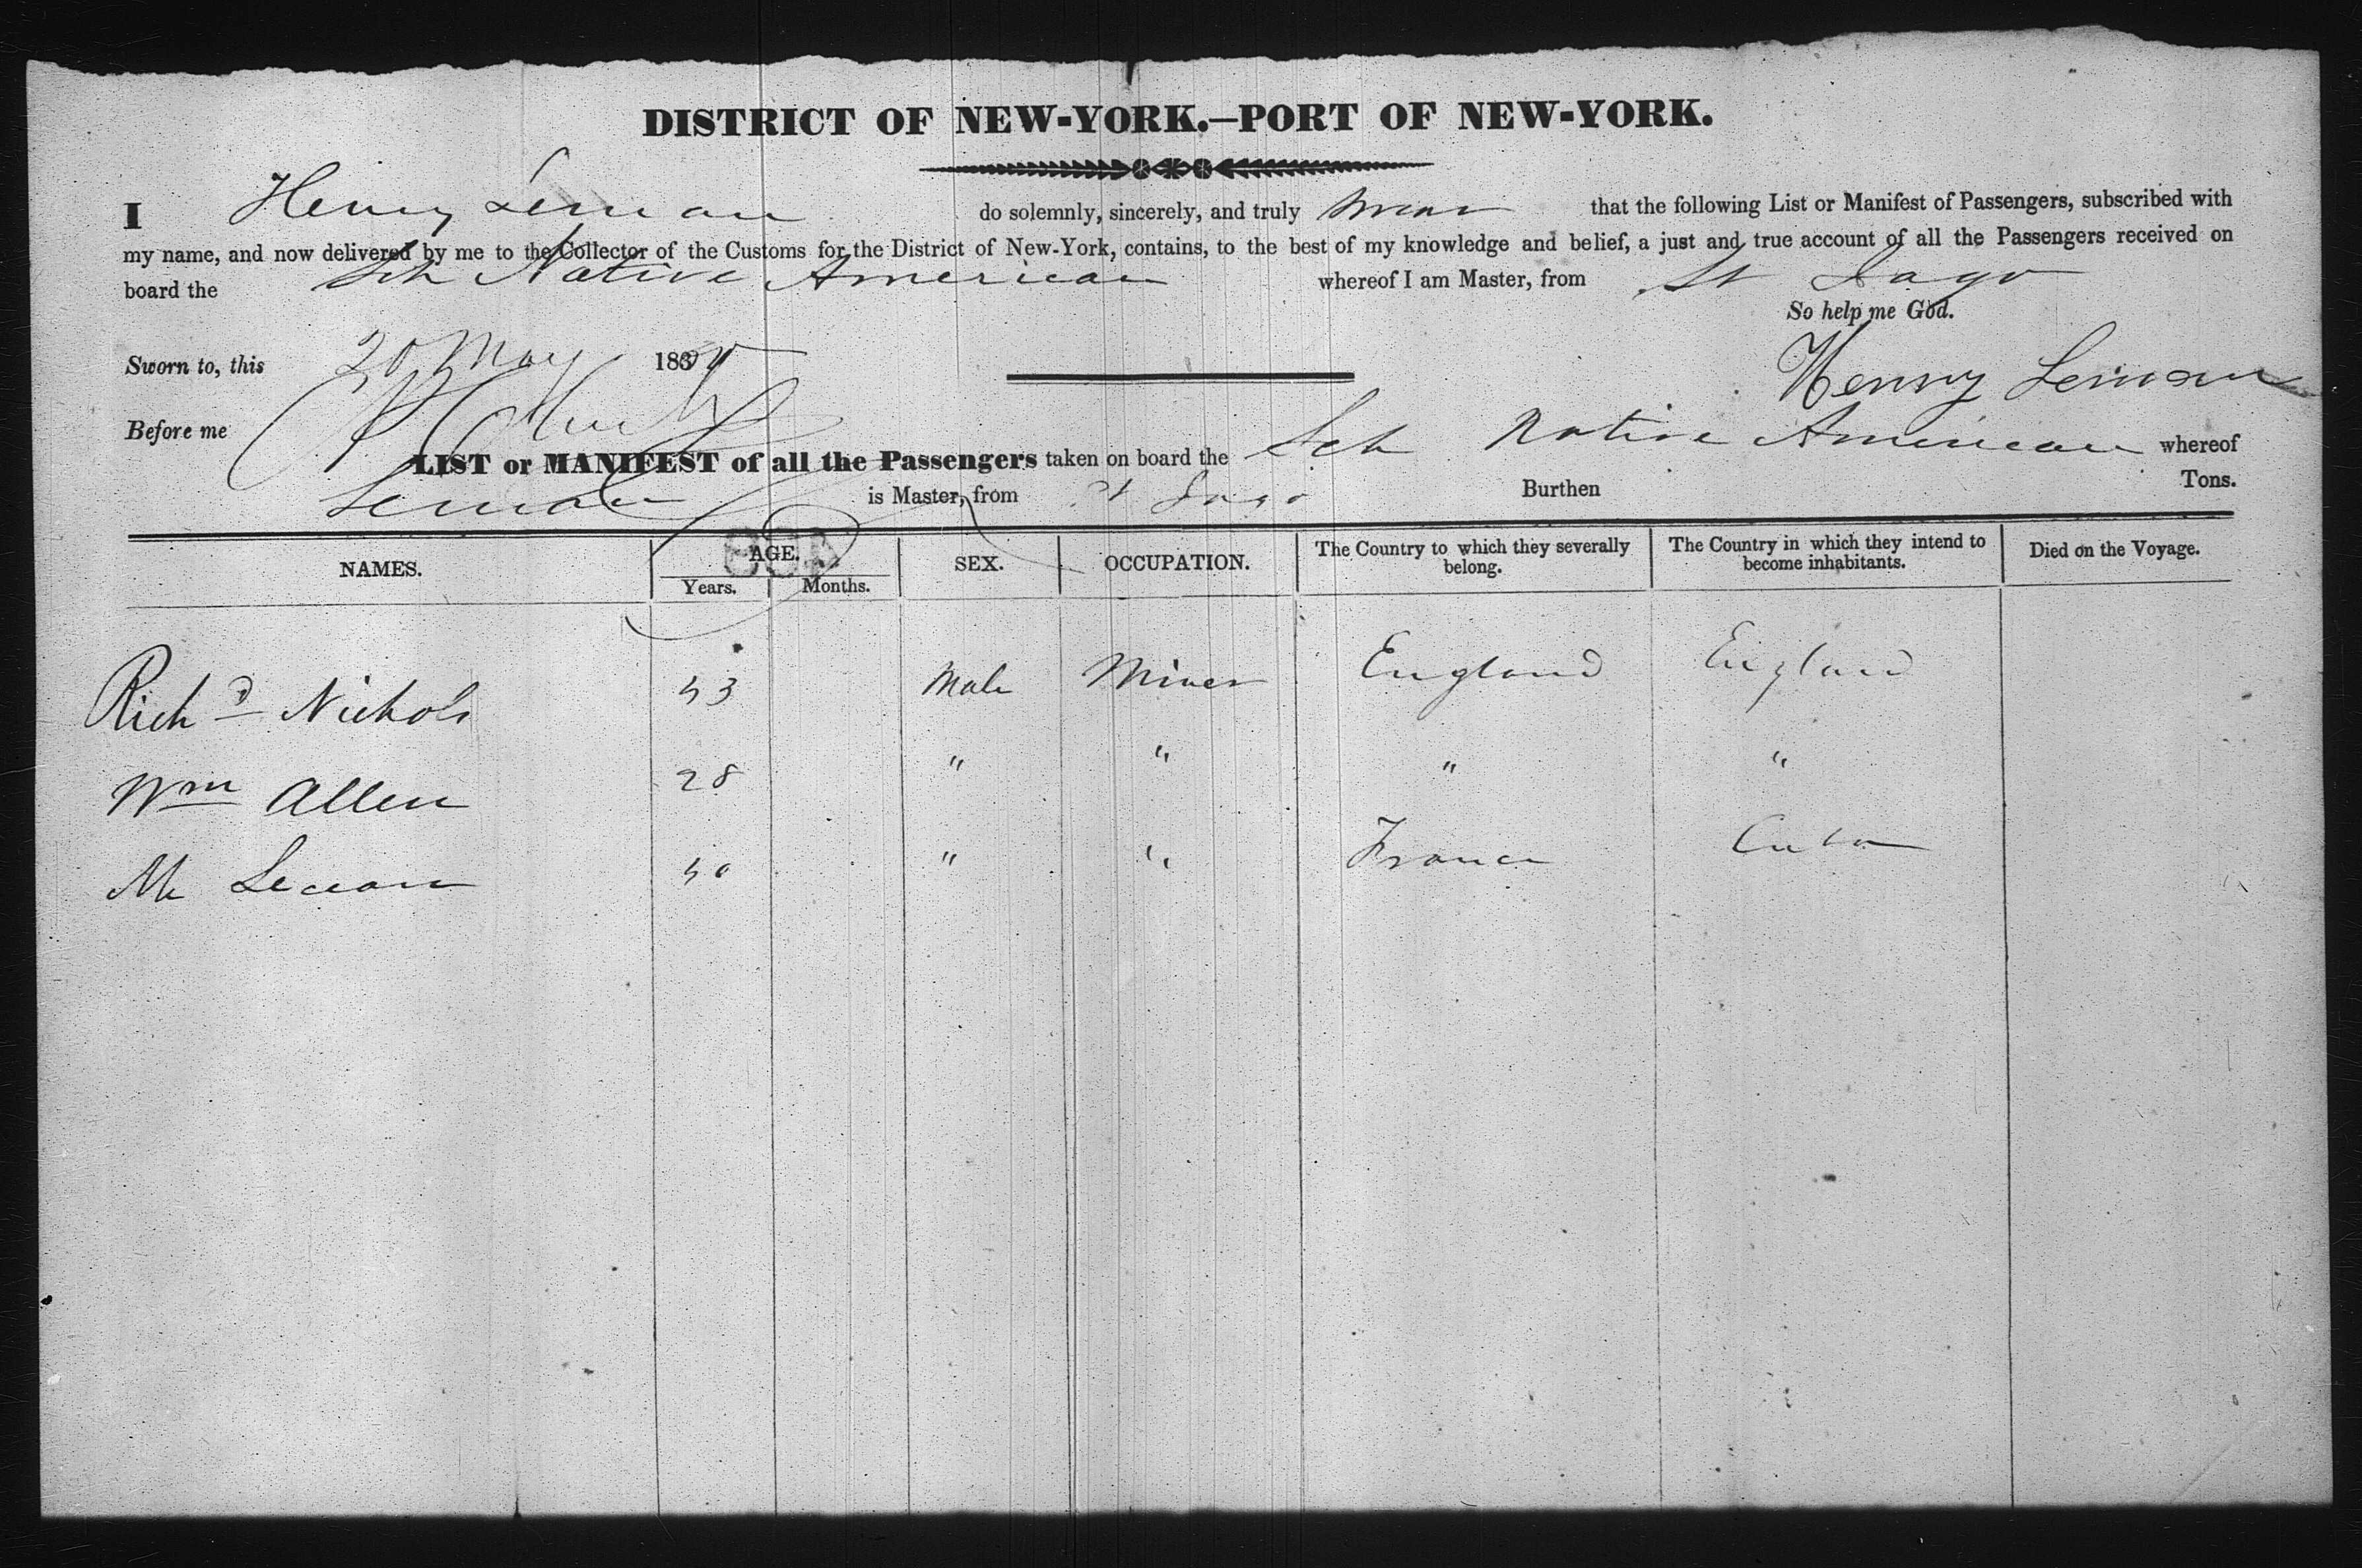 DISTRICT OF NEW-YORK.—PORT OF NEW-YORK.
I Henry Leman do solemnly, sincerely, and truly swear that the following List or Manifest of Passengers, subscribed with
my name, and now delivered by me to the Collector of the Customs for the District of New-York, contains, to the best of my knowledge and belief, a just and true account of all the Passengers received on
board the Sch Native American whereof I am Master, from St Jago
So help me God.
Sworn to, this 20 May 183
Henry Leman
Before me
LIST or MANIFEST of all the Passengers taken on board the Sch Native American whereof
Leman is Master, from St Jago Burthen Tons.
NAMES. AGE. SEX. OCCUPATION. The Country to which they severally belong. The Country in which they intend to become inhabitants. Died on the Voyage.
Years. Months.
Richd Nichols 53 Male Miner England England
Wm Allen 28 " " " "
Mr 50 " " France Cuba